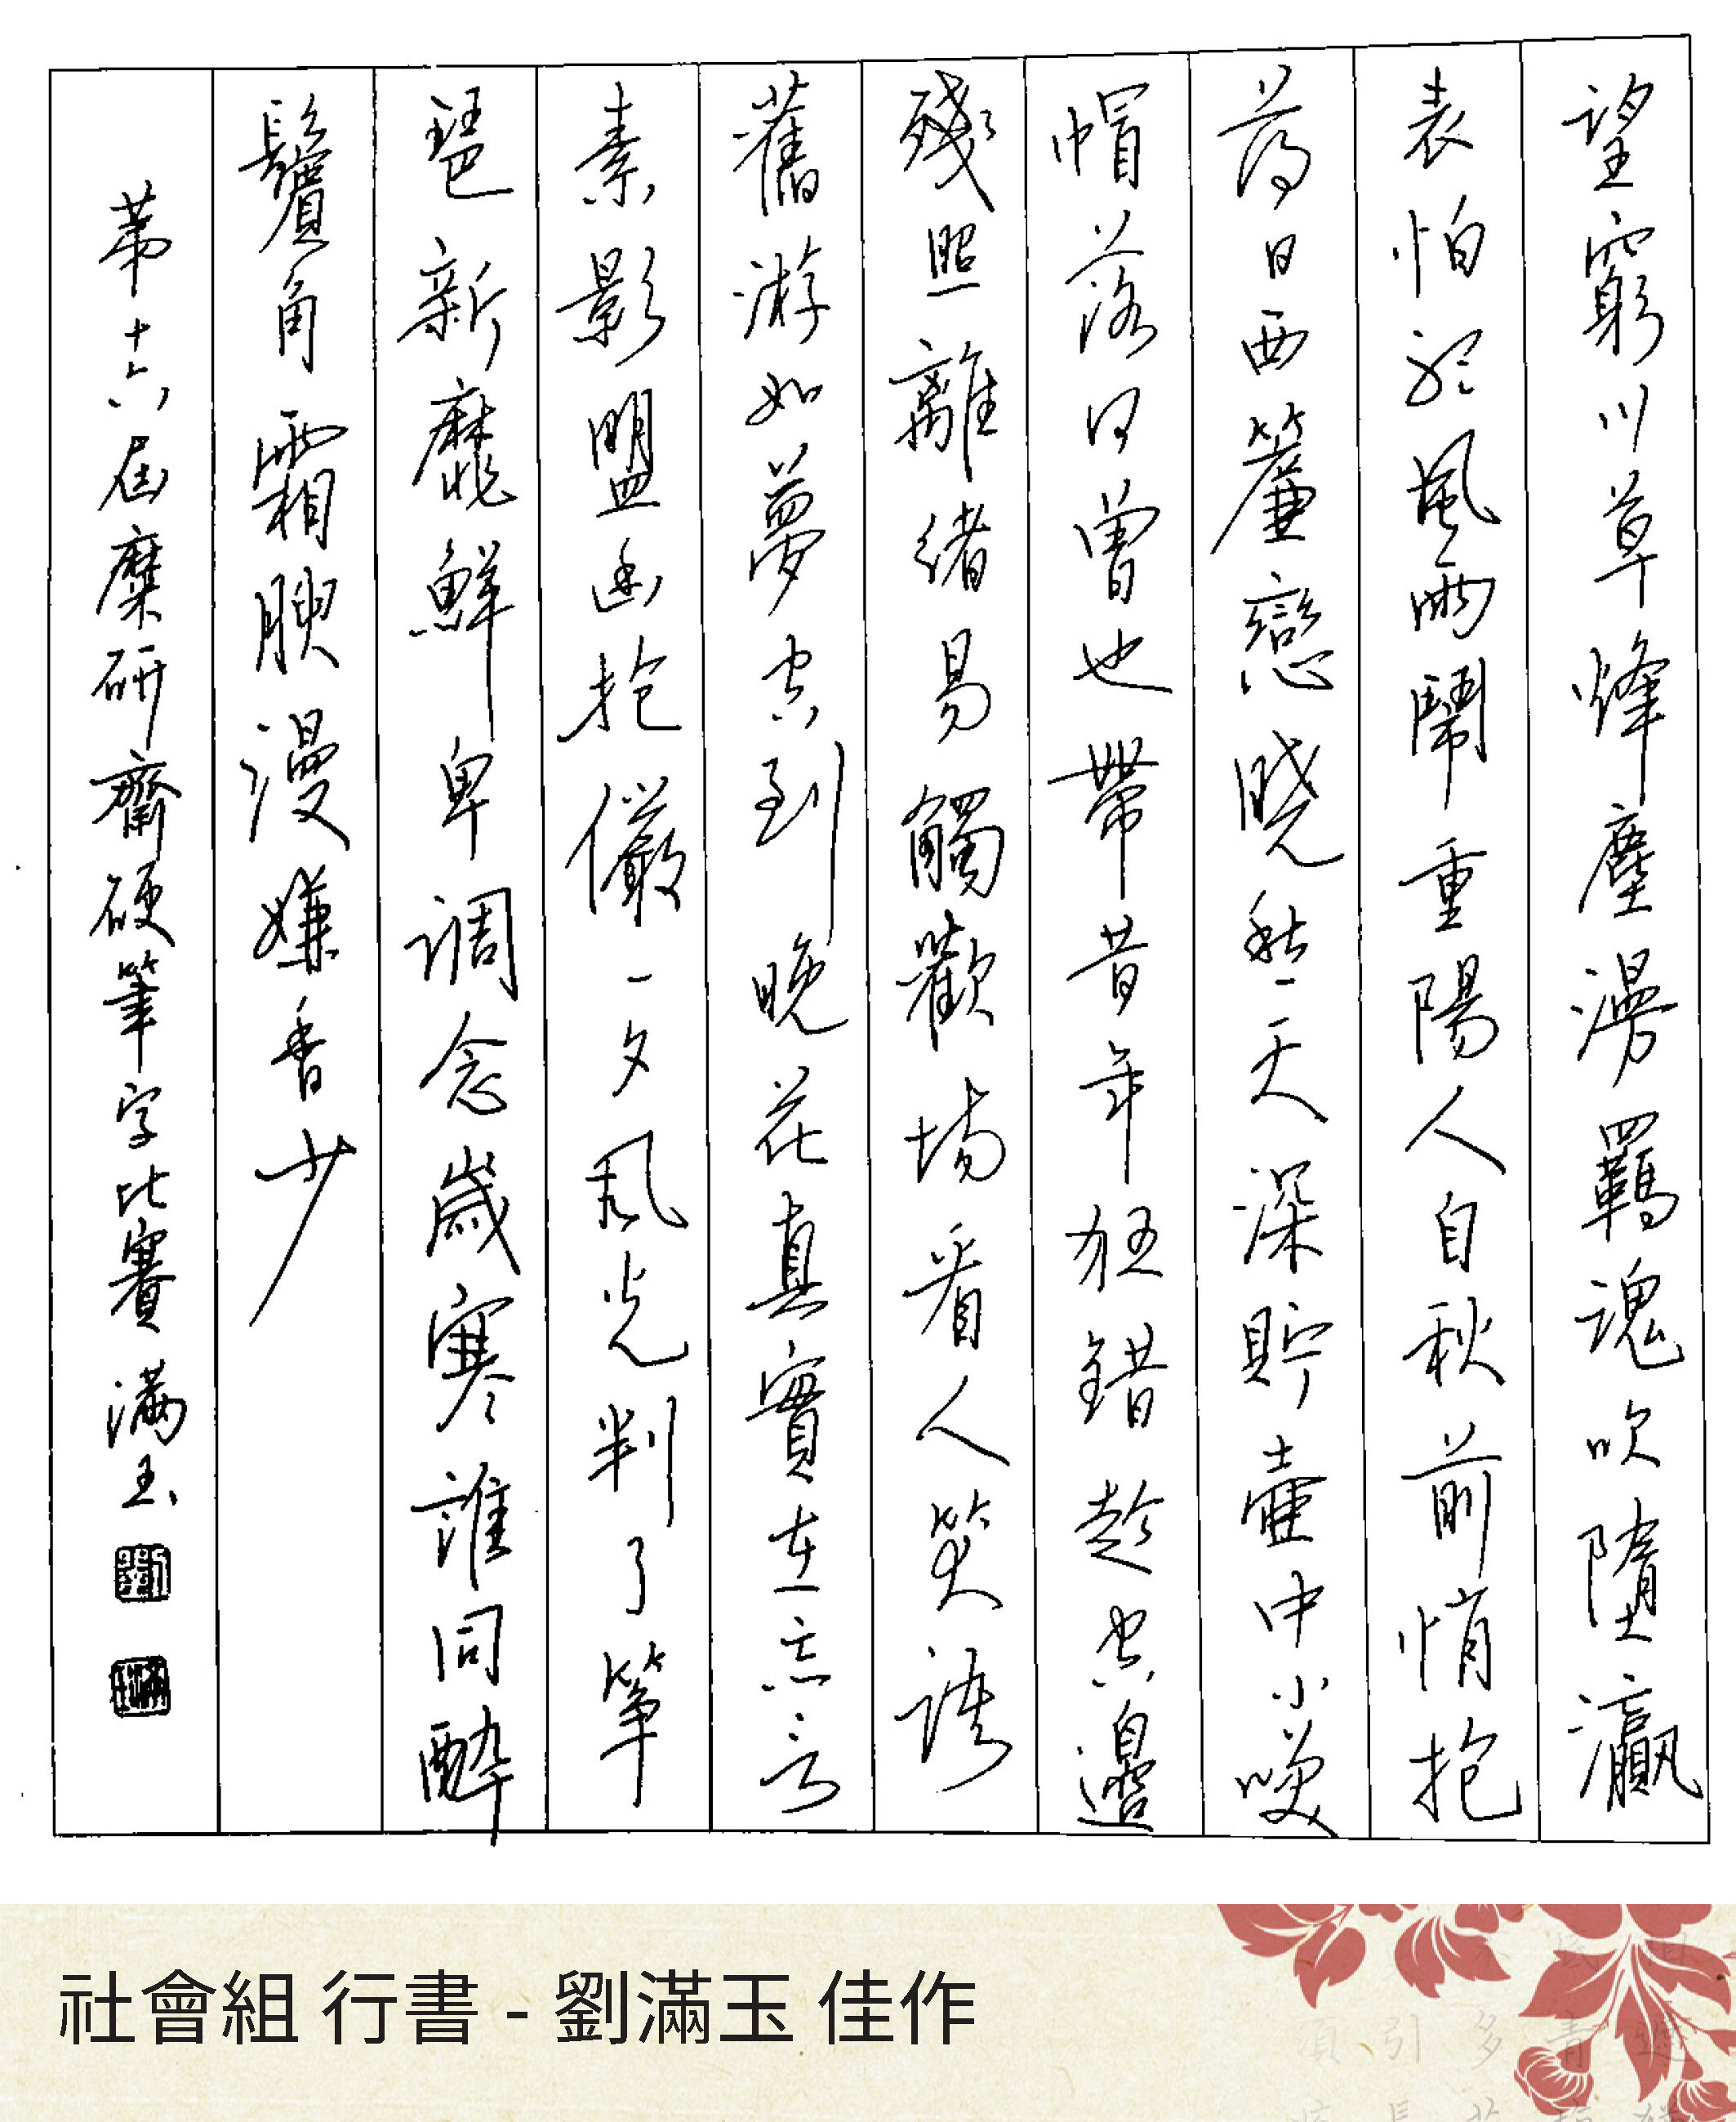 望窮川草烽塵澷羈魂吹墮瀛
表怕聽風雨鬧重陽人自秋前悄抱
蒋日西簾戀曉愁一天深貯壺中小嘆
帽落何曾也帶昔年狂錯趁空邊
殘照離緒易觸歡場看人笑語
舊游如夢空到晚花真實在忘言
素影盟幽抱儼一夕風光判了箏
琶新靡鮮卑調念歲寒誰同醉
鬢角霜腴漫嫌香少
第十六屆麋研齋硬筆字比賽 滿玉
社會組 行書 - 劉滿玉 佳作